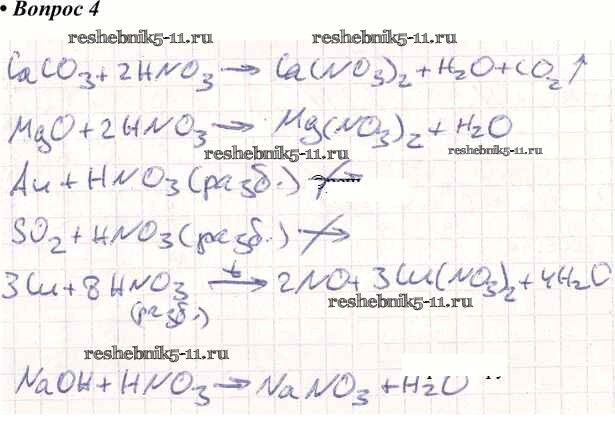 • Вопрос 4
reshebnik5-11.ru reshebnik5-11.ru
CaCO₃ + 2HNO₃ → Ca(NO₃)₂ + H₂O + CO₂↑
MgO + 2HNO₃ → Mg(NO₃)₂ + H₂O
reshebnik5-11.ru reshebnik5-11.ru
Au + HNO₃ (разб.) ↛
SO₂ + HNO₃ (разб.) ↛
3Cu + 8HNO₃ (разб.) →ᵗ 2NO + 3Cu(NO₃)₂ + 4H₂O
reshebnik5-11.ru
reshebnik5-11.ru
NaOH + HNO₃ → NaNO₃ + H₂O